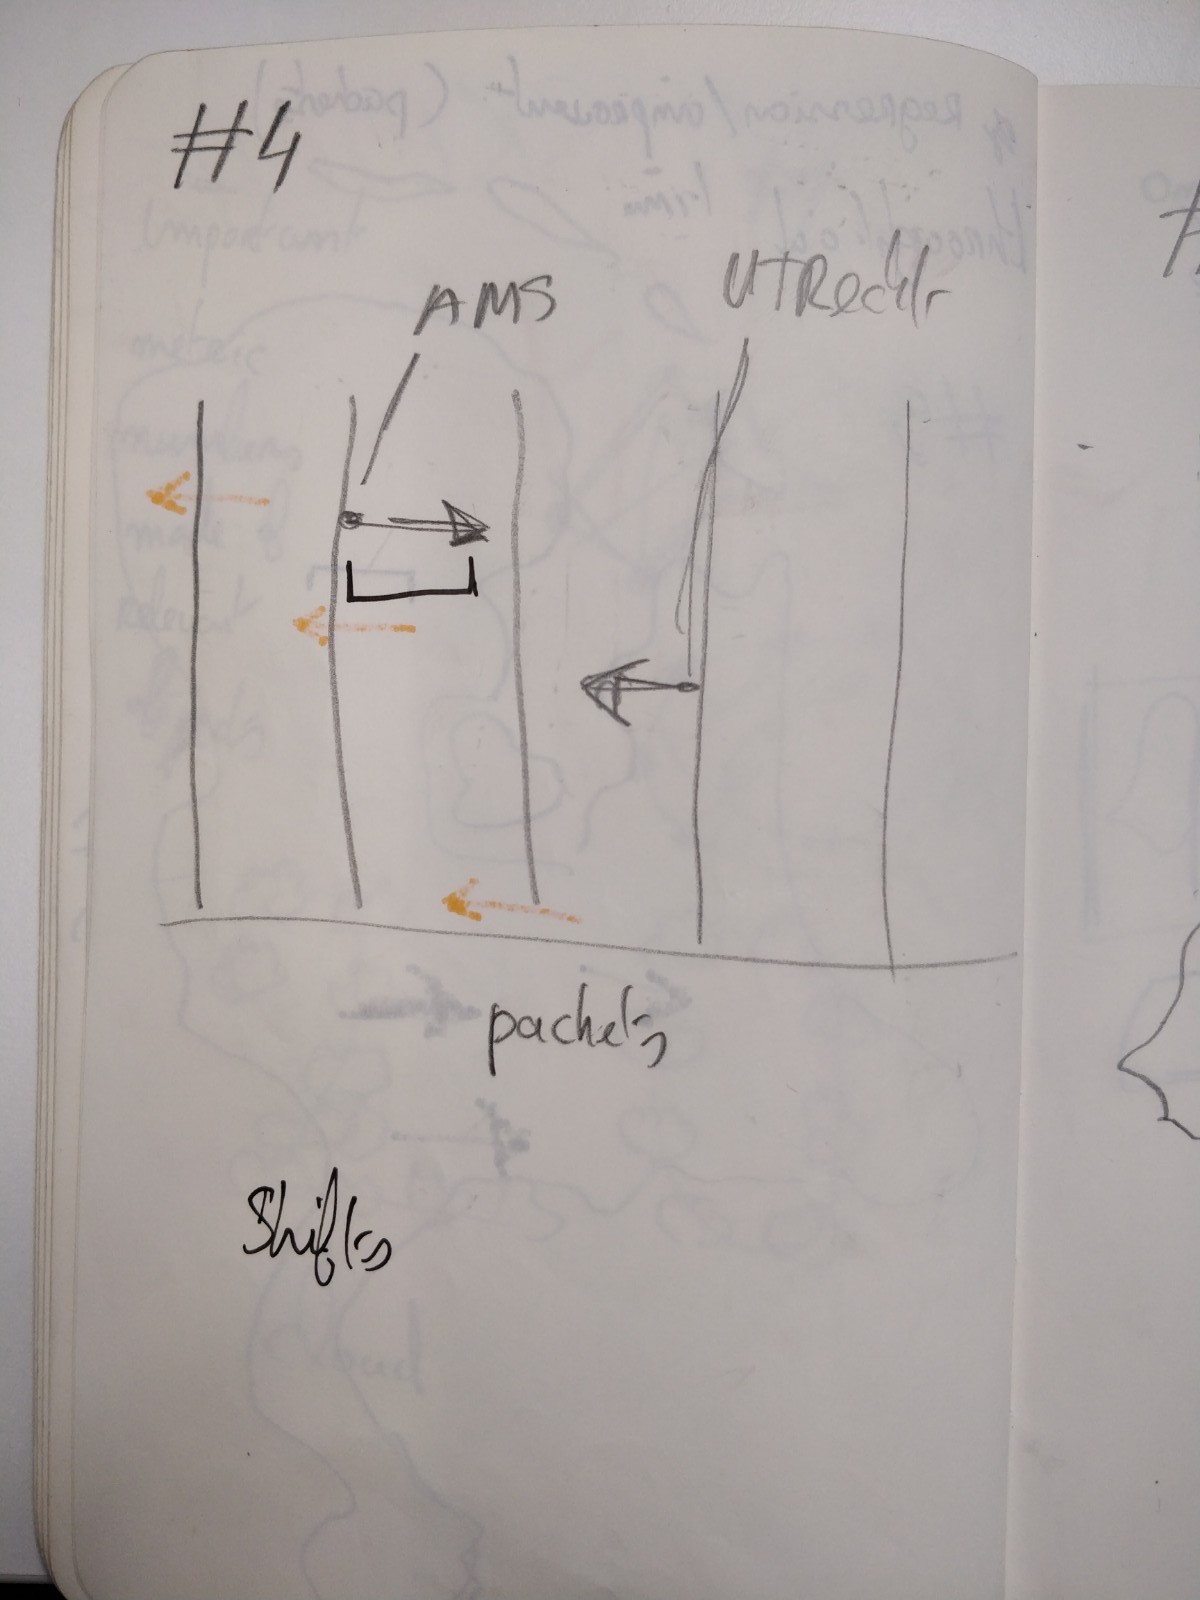 #4
AMS
UTRecht
packets
Shifts